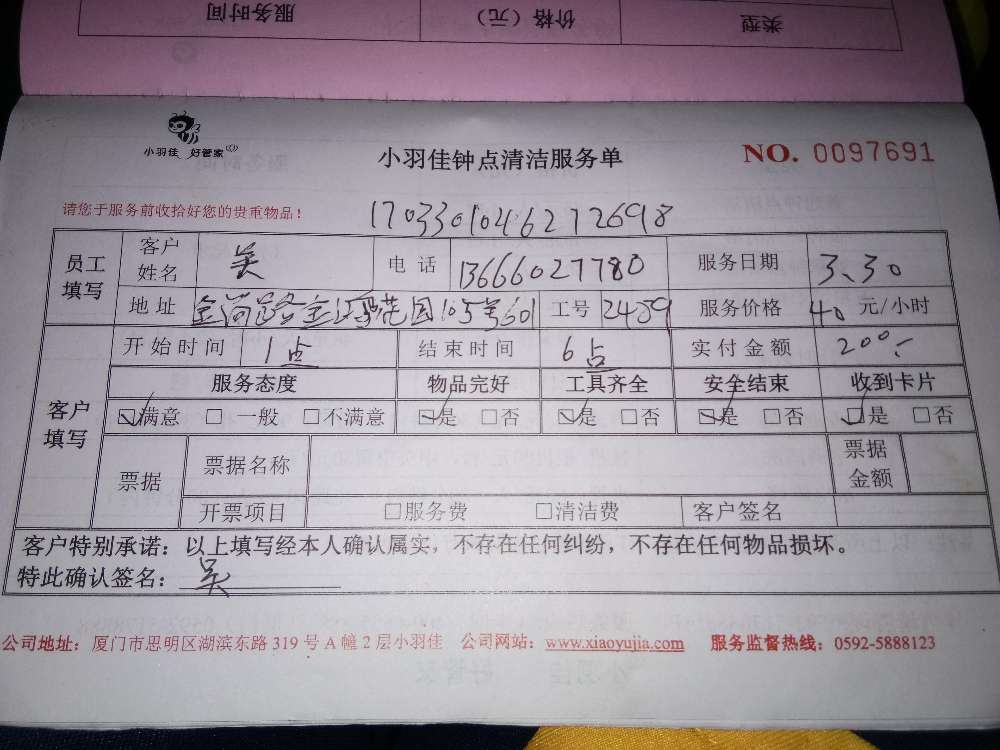 类型 价格（元） 服务时间
小羽佳 好管家
小羽佳钟点清洁服务单
NO. 0097691
请您于服务前收拾好您的贵重物品！
17033010462772698
员工填写 客户姓名 吴 电话 13666027780 服务日期 3、30
地址 105号601 工号 2489 服务价格 40 元/小时
客户填写 开始时间 1点 结束时间 6点 实付金额 200
服务态度 物品完好 工具齐全 安全结束 收到卡片
☑满意 □一般 □不满意 ☑是 □否 ☑是 □否 ☑是 □否 ☑是 □否
票据 票据名称 票据金额
开票项目 □服务费 □清洁费 客户签名
客户特别承诺：以上填写经本人确认属实，不存在任何纠纷，不存在任何物品损坏。
特此确认签名：吴
公司地址：厦门市思明区湖滨东路 319 号 A 幢 2 层小羽佳 公司网站：www.xiaoyujia.com 服务监督热线：0592-5888123